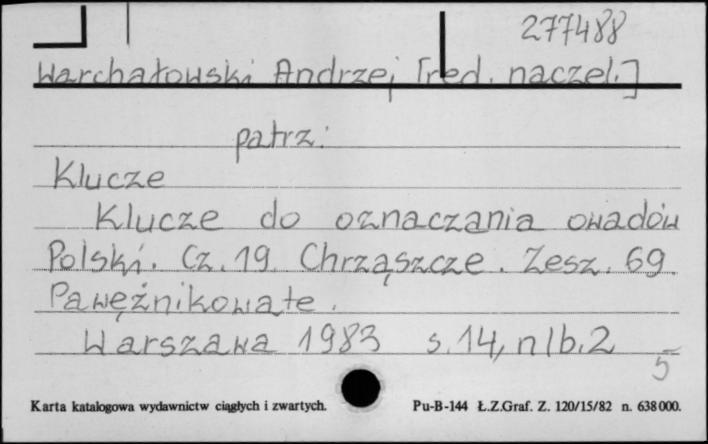 277488
Warchałowski Andrzej [red. naczel.]
patrz:
Klucze
Klucze do oznaczania owadów
Polski. Cz. 19. Chrząszcze. Zesz. 69.
Pawężnikowate.
Warszawa 1983 s. 14, nlb. 2
5
Karta katalogowa wydawnictw ciągłych i zwartych. Pu-B-144 Ł.Z.Graf. Z. 120/15/82 n. 638000.